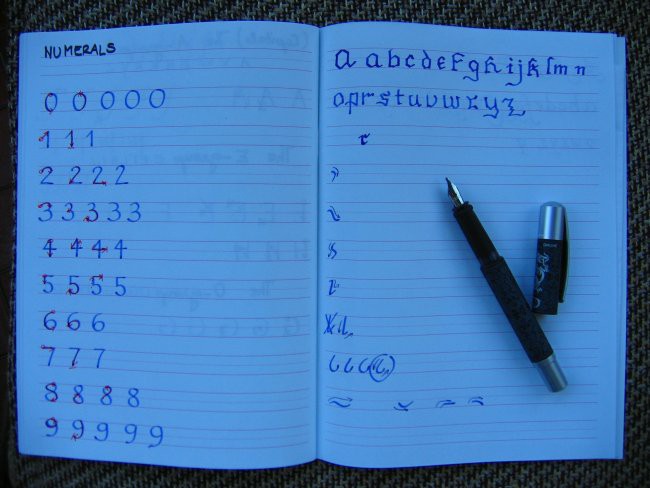 NUMERALS
0 0 0 0 0
1 1 1
2 2 2 2
3 3 3 3 3
4 4 4 4
5 5 5 5
6 6 6
7 7 7
8 8 8 8
9 9 9 9 9
a a b c d e f g h i j k l m n
o p r s t u v w x y z